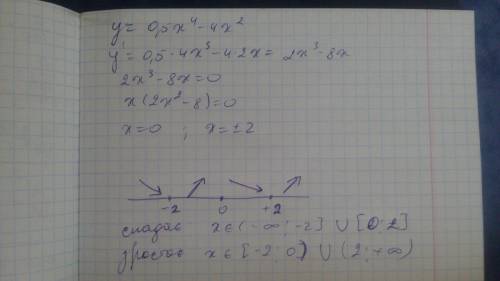 y = 0,5x⁴ - 4x²
y' = 0,5 · 4x³ - 4·2x = 2x³ - 8x
2x³ - 8x = 0
x(2x² - 8) = 0
x = 0 ; x = ±2
-2 0 +2
спадає x ∈ (-∞; -2] ∪ [0; 2]
зростає x ∈ [-2; 0] ∪ (2; +∞)